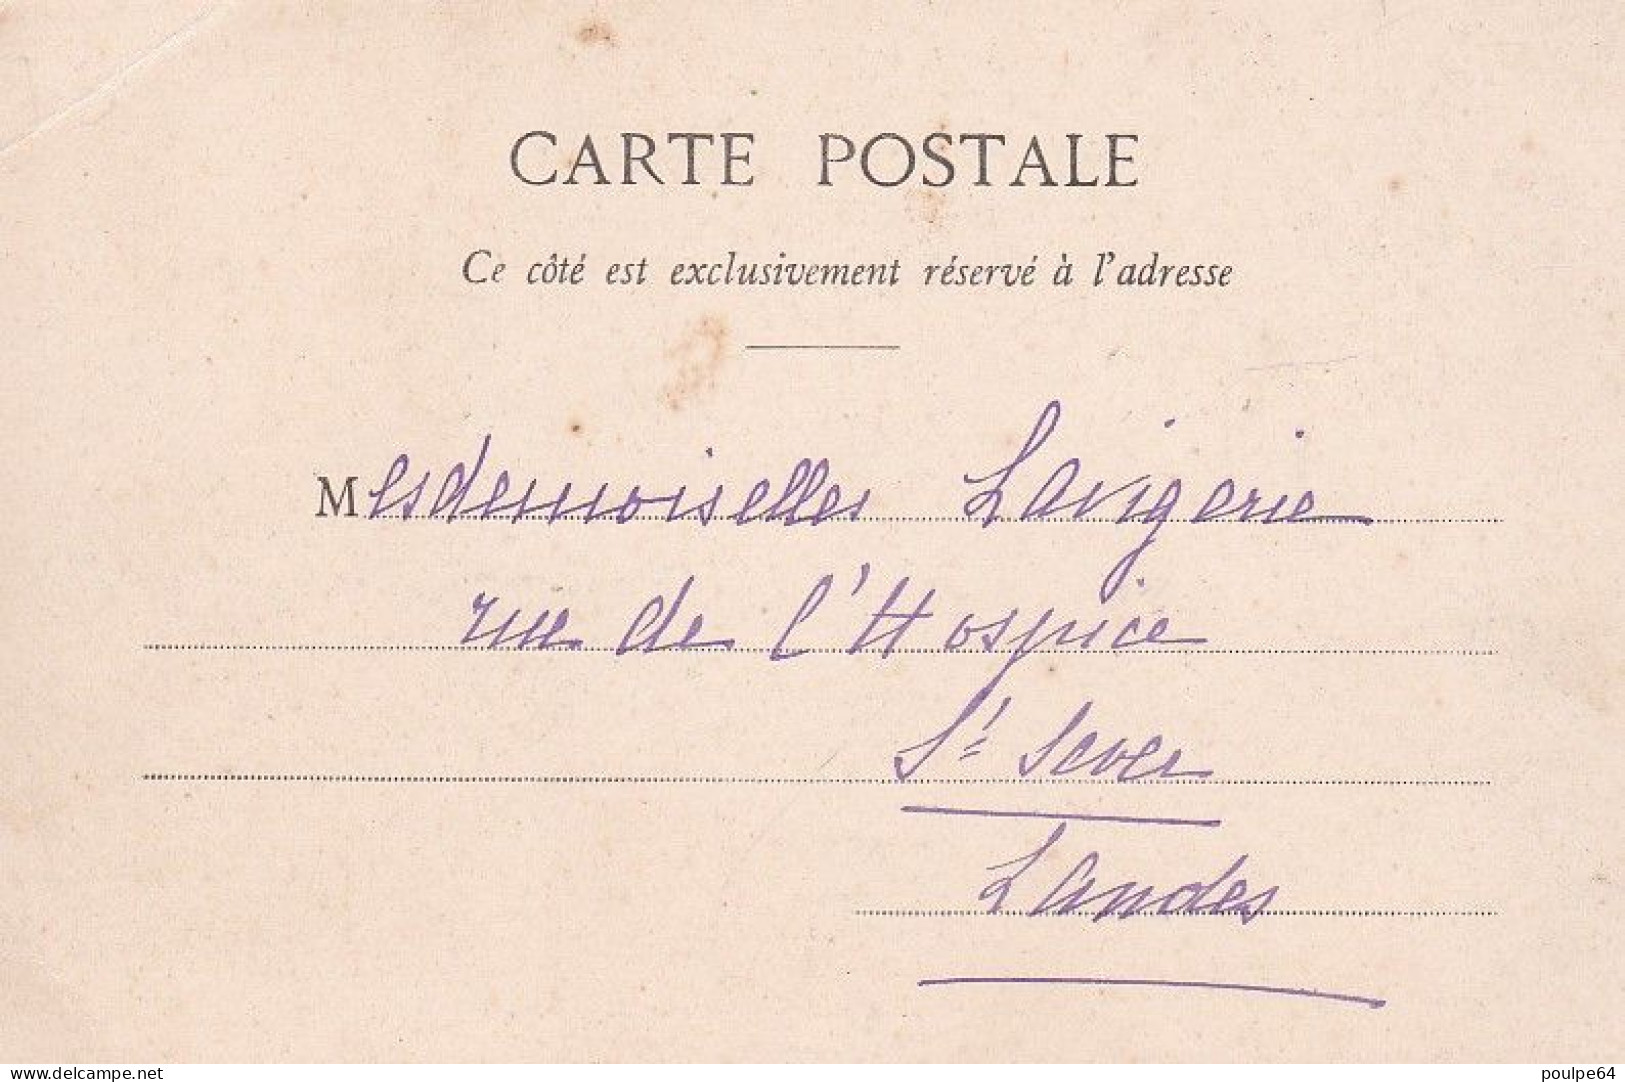 CARTE POSTALE
Ce côté est exclusivement réservé à l'adresse
Mesdemoiselles Lavigerie
rue de l'Hospice
St Sever
Landes
www.delcampe.net
poulpe64